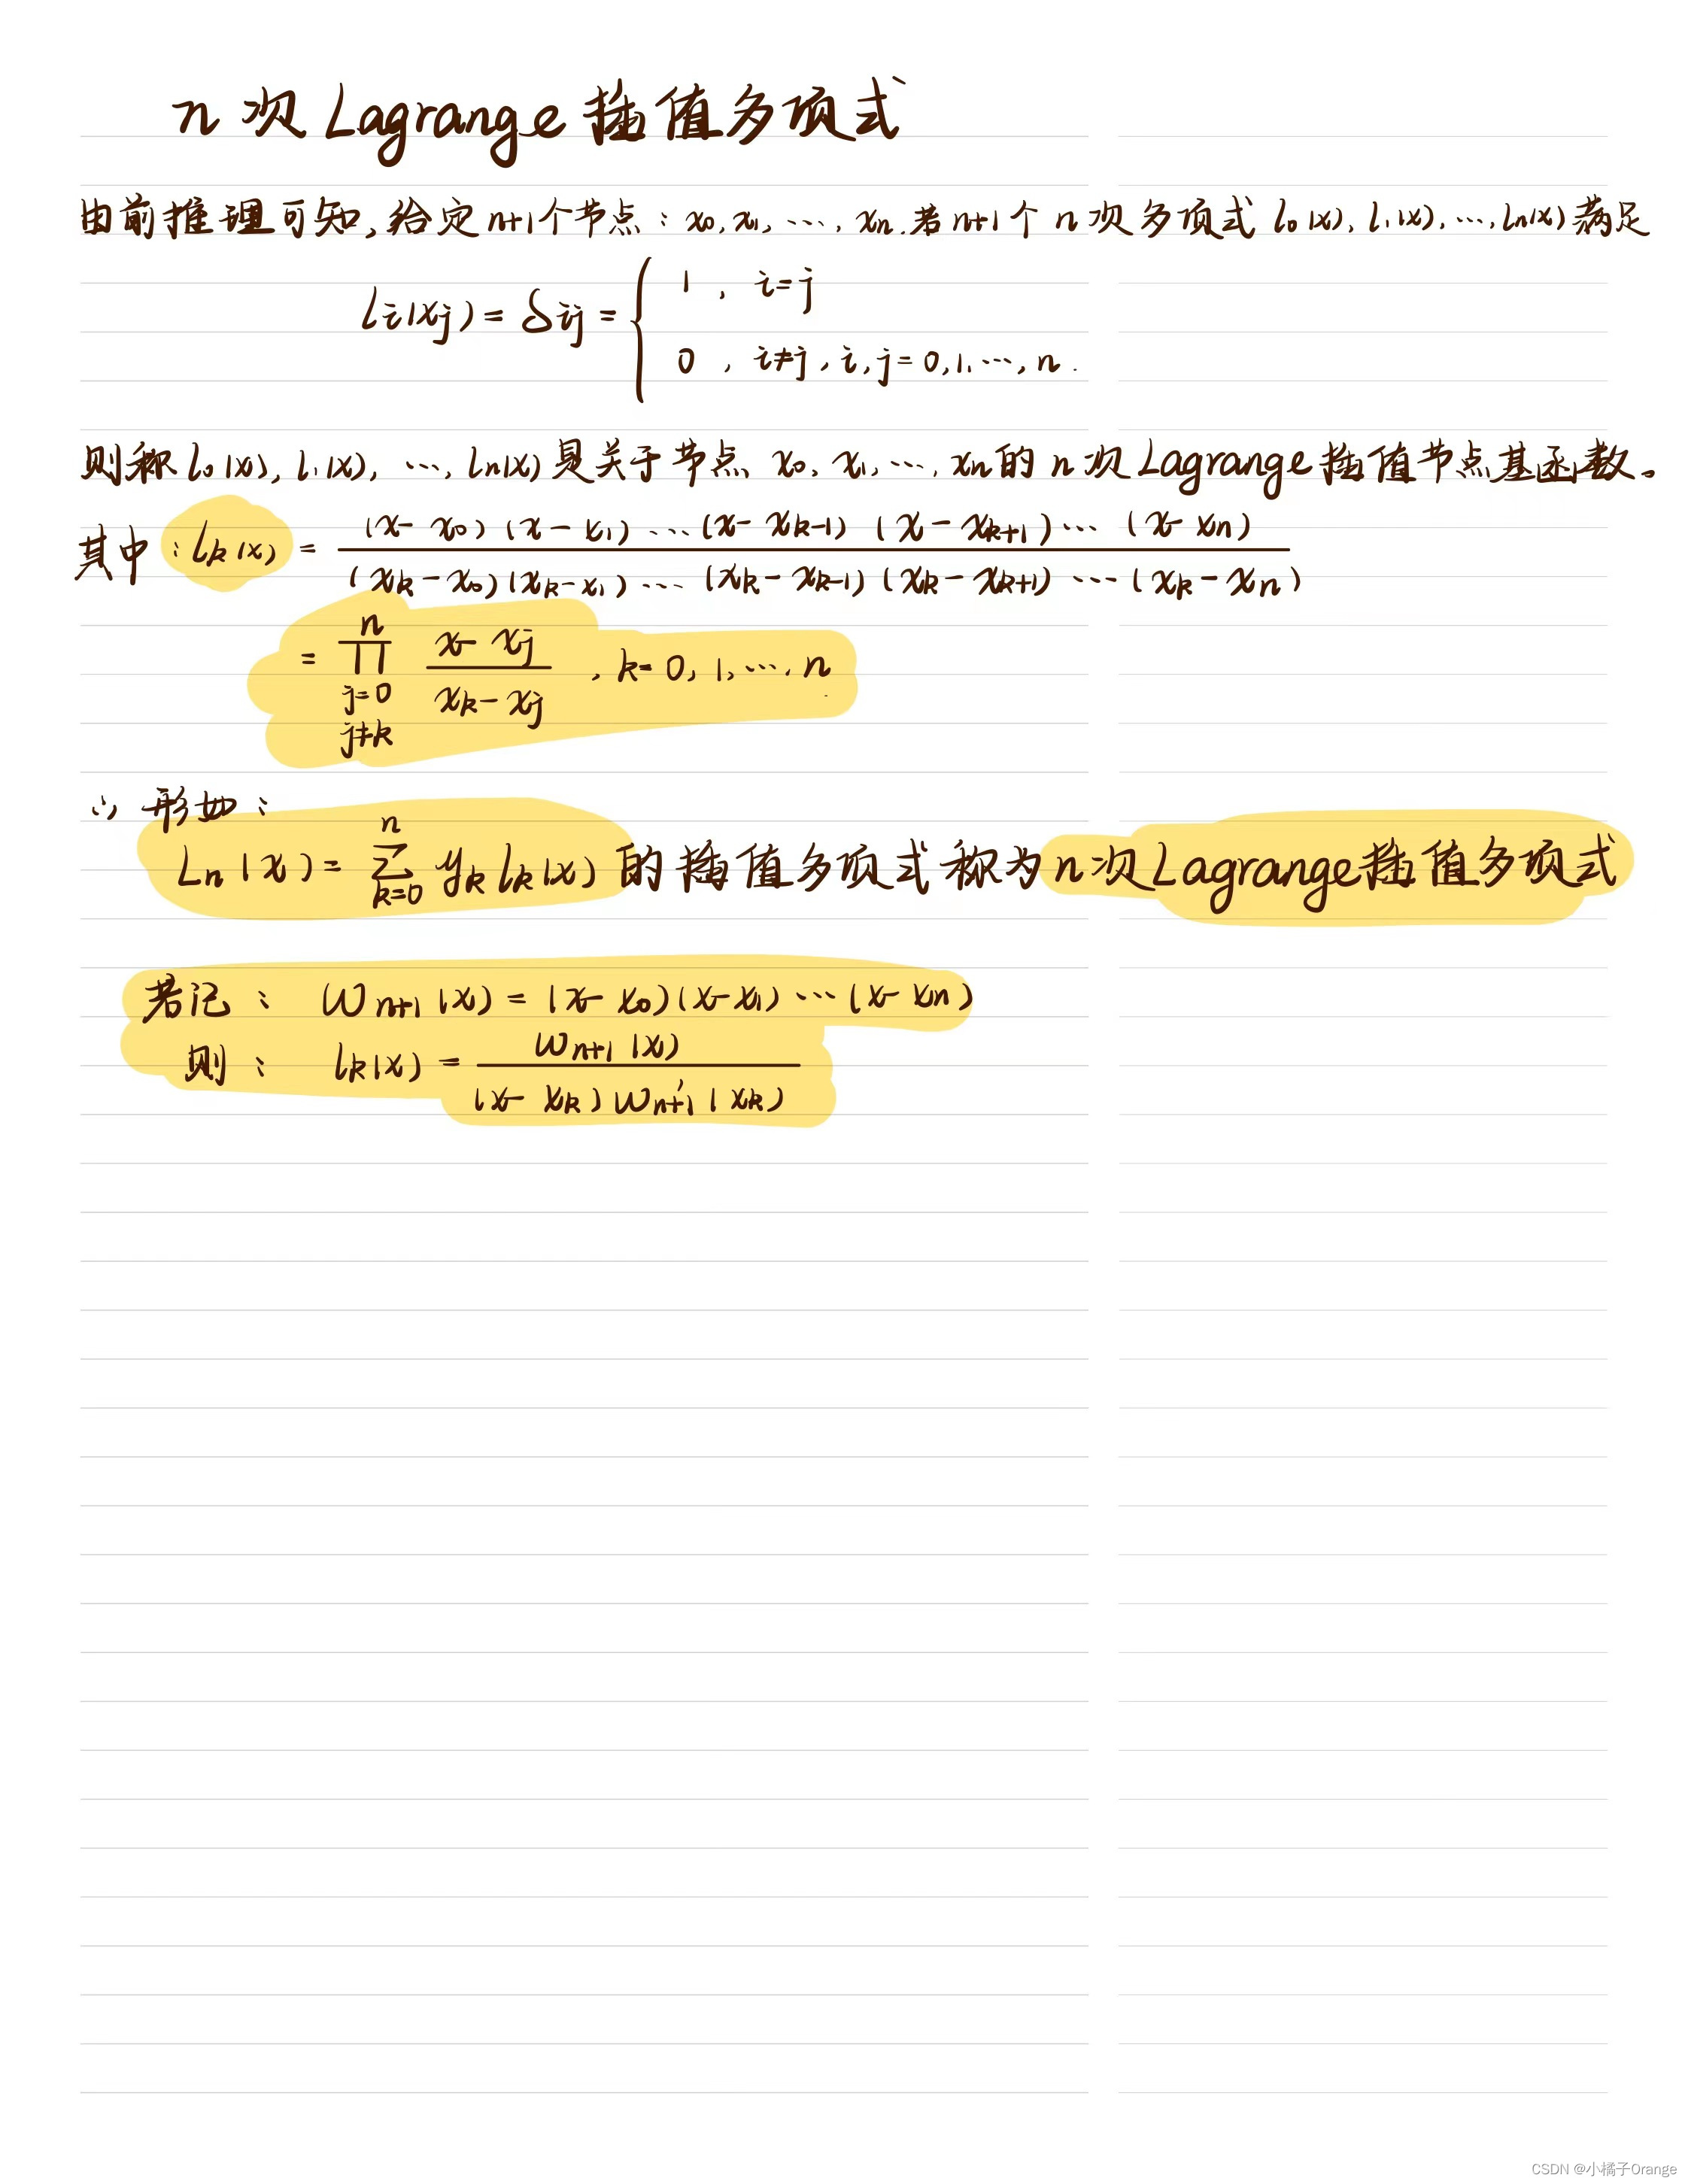 n次Lagrange插值多项式
由前推理可知,给定n+1个节点:x₀,x₁,…,xₙ.若n+1个n次多项式l₀(x),l₁(x),…,lₙ(x)满足
lᵢ(xⱼ)=δᵢⱼ={ 1, i=j
0, i≠j, i,j=0,1,…,n.
则称l₀(x),l₁(x),…,lₙ(x)是关于节点x₀,x₁,…,xₙ的n次Lagrange插值节点基函数。
其中:lₖ(x)= (x-x₀)(x-x₁)…(x-xₖ₋₁)(x-xₖ₊₁)…(x-xₙ) / (xₖ-x₀)(xₖ-x₁)…(xₖ-xₖ₋₁)(xₖ-xₖ₊₁)…(xₖ-xₙ)
= ∏ⁿ j=0 j≠k (x-xⱼ)/(xₖ-xⱼ) , k=0,1,…,n
∴形如:
Lₙ(x)= ∑ⁿ k=0 yₖlₖ(x)的插值多项式称为n次Lagrange插值多项式
若记: ωₙ₊₁(x)=(x-x₀)(x-x₁)…(x-xₙ)
则: lₖ(x)= ωₙ₊₁(x) / (x-xₖ)ω'ₙ₊₁(xₖ)
CSDN @小橘子Orange